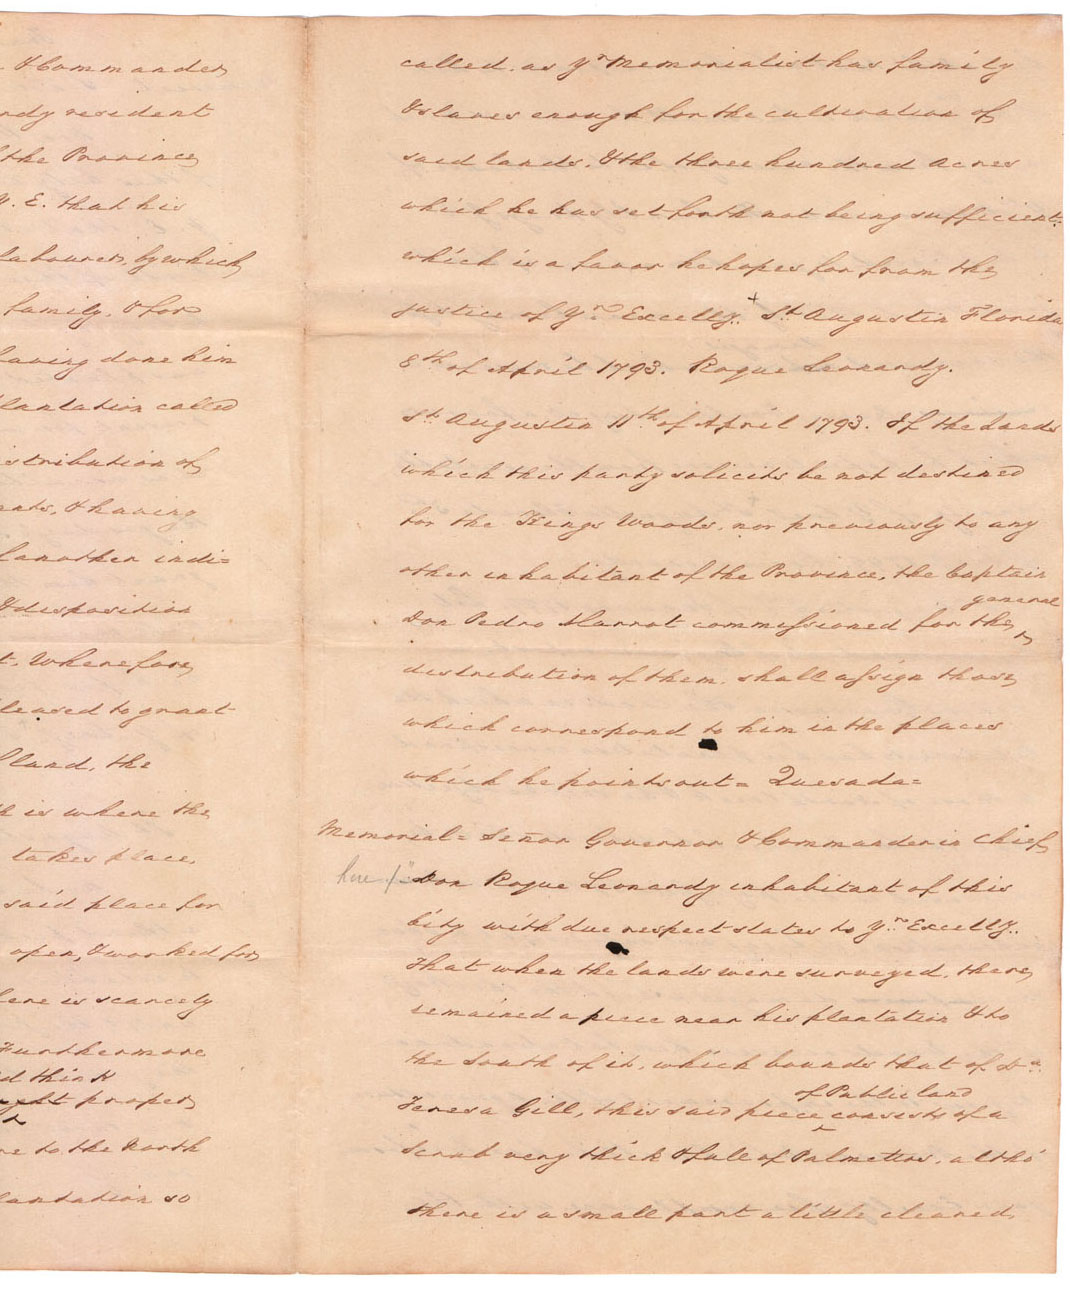 & Commander
ndy resident
the Province
Y. E. that his
labourers, by which
family, & for
having done him
lantation called
istribution of
ents, & having
another indi=
& disposition
t. Wherefore,
leased to grant
land, the
is where the
takes place,
said place for
open, & worked for
here is scarcely
Furthermore
d think
ught proper
re to the North
lantation so
called, as Yr. Memorialist has family
& slaves enough for the cultivation of
said lands, & the three hundred acres
which he has set forth not being sufficient:
which is a favor he hopes for from the
justice of Yr. Excelly. + St. Augustin Florida
8th of April 1793. Roque Leonardy.
St. Augustin 11th of April 1793. If the Lands
which this party solicits be not destined
for the Kings Woods, nor previously to any
other inhabitant of the Province, the Captain
general
Don Pedro Marrot commissioned for the
distribution of them, shall assign those,
which correspond to him in the places
which he points out= Quesada=
Memorial= Señor Governor & Commander in Chief
here / Don Roque Leonardy inhabitant of this
City with due respect states to Yr. Excelly.
That when the lands were surveyed, there,
remained a piece near his plantation & to
the South of it, which bounds that of Da.
of Public land
Teresa Gill, this said piece consists of a
Scrub very thick & full of Palmettos, altho'
there is a small part a little cleared,